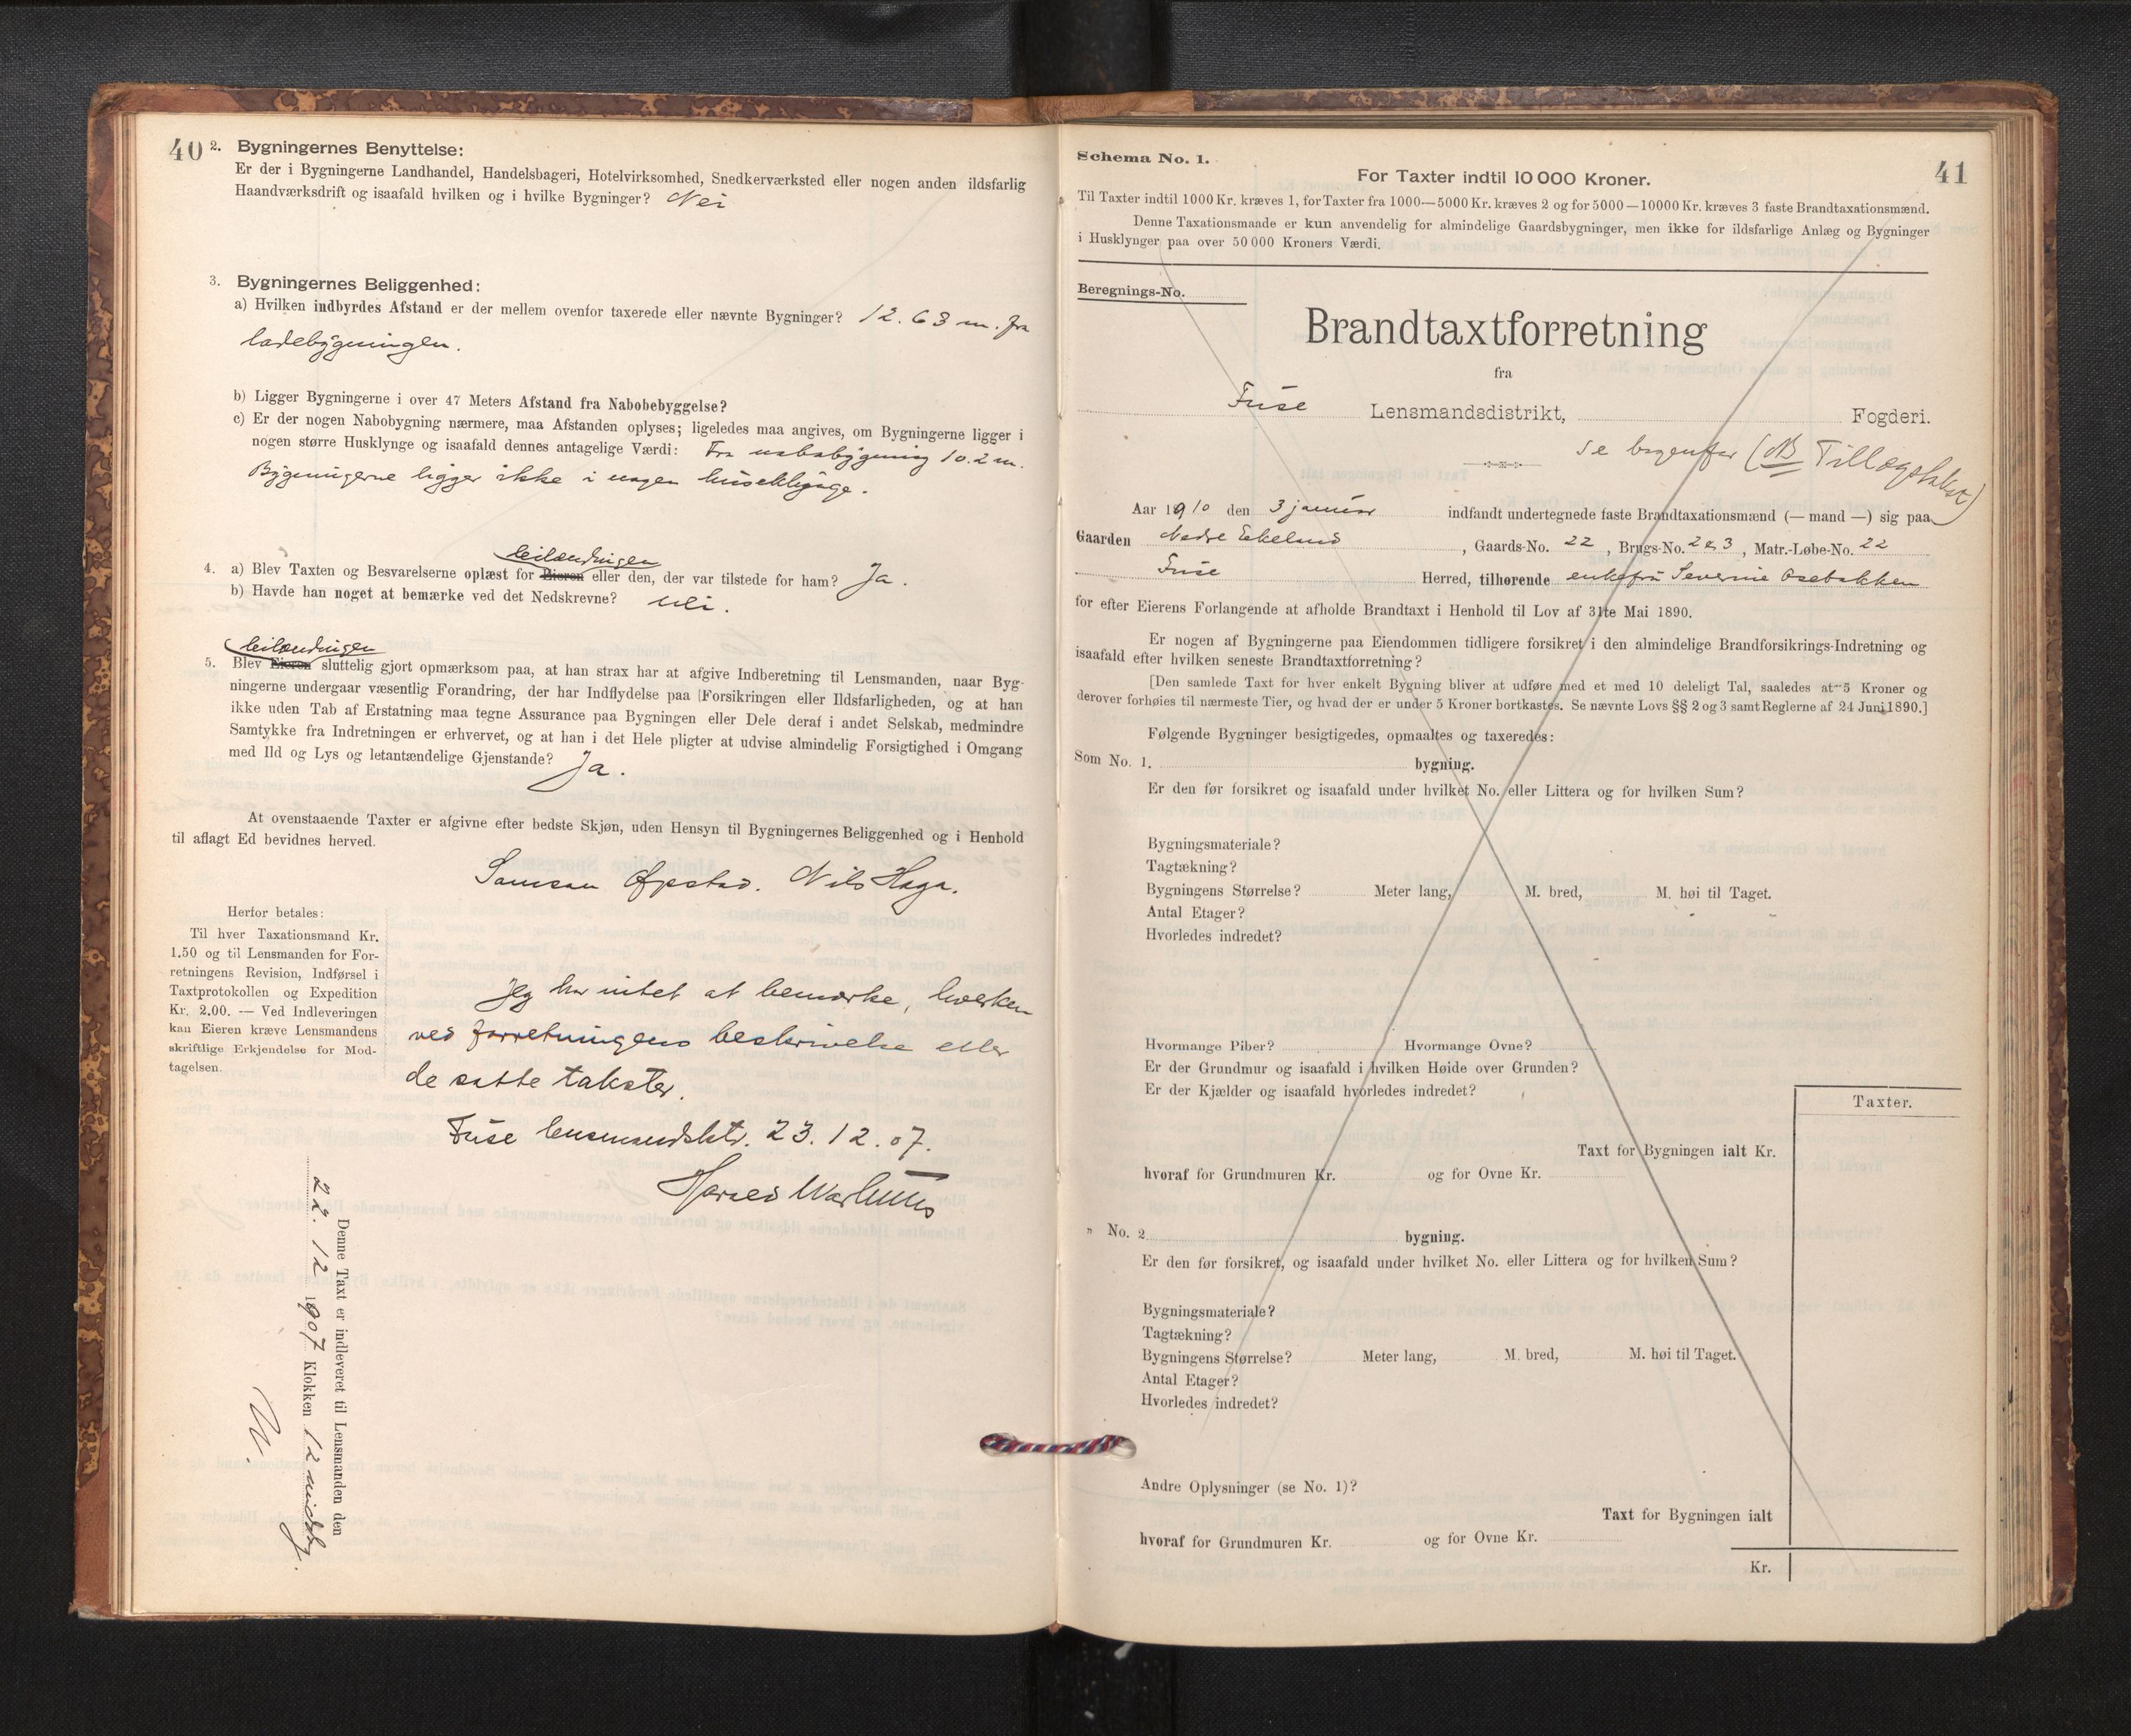 40
2. Bygningernes Benyttelse:
Er der i Bygningerne Landhandel, Handelsbageri, Hotelvirksomhed, Snedkerværksted eller nogen anden ildsfarlig
Haandværksdrift og isaafald hvilken og i hvilke Bygninger? Nei
3. Bygningernes Beliggenhed:
a) Hvilken indbyrdes Afstand er der mellem ovenfor taxerede eller nævnte Bygninger? 12.63 m. fra
ladebygningen.
b) Ligger Bygningerne i over 47 Meters Afstand fra Nabobebyggelse?
c) Er der nogen Nabobygning nærmere, maa Afstanden oplyses; ligeledes maa angives, om Bygningerne ligger i
nogen større Husklynge og isaafald dennes antagelige Værdi: Fra nabobygning 10.2 m.
Bygningerne ligger ikke i nogen husklynge.
leilændingen
4. a) Blev Taxten og Besvarelserne oplæst for Eieren eller den, der var tilstede for ham? Ja.
b) Havde han noget at bemærke ved det Nedskrevne? Nei.
leilændingen
5. Blev Eieren sluttelig gjort opmærksom paa, at han strax har at afgive Indberetning til Lensmanden, naar Byg-
ningerne undergaar væsentlig Forandring, der har Indflydelse paa (Forsikringen eller Ildsfarligheden, og at han
ikke uden Tab af Erstatning maa tegne Assurance paa Bygningen eller Dele deraf i andet Selskab, medmindre
Samtykke fra Indretningen er erhvervet, og at han i det Hele pligter at udvise almindelig Forsigtighed i Omgang
med Ild og Lys og letantændelige Gjenstande? Ja.
At ovenstaaende Taxter er afgivne efter bedste Skjøn, uden Hensyn til Bygningernes Beliggenhed og i Henhold
til aflagt Ed bevidnes herved.
Samson Øpstad. Nils Haga.
Herfor betales:
Til hver Taxationsmand Kr.
1.50 og til Lensmanden for For-
retningens Revision, Indførsel i
Taxtprotokollen og Expedition
Kr. 2.00. — Ved Indleveringen
kan Eieren kræve Lensmandens
skriftlige Erkjendelse for Mod-
tagelsen.
Jeg har intet at bemærke, hverken
ved forretningens beskrivelse eller
de satte takster.
Fuse lensmandsktr. 23.12.07.
Harald
Denne Taxt er indleveret til Lensmanden den
22.12 1907 Klokken 12 middg.
41
Schema No. 1.
For Taxter indtil 10 000 Kroner.
Til Taxter indtil 1000 Kr. kræves 1, for Taxter fra 1000—5000 Kr. kræves 2 og for 5000—10000 Kr. kræves 3 faste Brandtaxationsmænd.
Denne Taxationsmaade er kun anvendelig for almindelige Gaardsbygninger, men ikke for ildsfarlige Anlæg og Bygninger
i Husklynger paa over 50 000 Kroners Værdi.
Beregnings-No.
Brandtaxtforretning
fra
Fuse Lensmandsdistrikt, Fogderi.
se bagenfor (NB Tillægstakst)
Aar 1910 den 3 januar indfandt undertegnede faste Brandtaxationsmænd (— mand —) sig paa
Gaarden Nedre Eikeland, Gaards-No. 22, Brugs-No. 2 & 3, Matr.-Løbe-No. 22
Fuse Herred, tilhørende enkefru Severine Osebakken
for efter Eierens Forlangende at afholde Brandtaxt i Henhold til Lov af 31te Mai 1890.
Er nogen af Bygningerne paa Eiendommen tidligere forsikret i den almindelige Brandforsikrings-Indretning og
isaafald efter hvilken seneste Brandtaxtforretning?
[Den samlede Taxt for hver enkelt Bygning bliver at udføre med et med 10 deleligt Tal, saaledes at 5 Kroner og
derover forhøies til nærmeste Tier, og hvad der er under 5 Kroner bortkastes. Se nævnte Lovs §§ 2 og 3 samt Reglerne af 24 Juni 1890.]
Følgende Bygninger besigtigedes, opmaaltes og taxeredes:
Som No. 1. bygning.
Er den før forsikret og isaafald under hvilket No. eller Littera og for hvilken Sum?
Bygningsmateriale?
Tagtækning?
Bygningens Størrelse? Meter lang, M. bred, M. høi til Taget.
Antal Etager?
Hvorledes indredet?
Hvormange Piber? Hvormange Ovne?
Er der Grundmur og isaafald i hvilken Høide over Grunden?
Er der Kjælder og isaafald hvorledes indredet?
Taxter.
Taxt for Bygningen ialt Kr.
hvoraf for Grundmuren Kr. og for Ovne Kr.
" No. 2 bygning.
Er den før forsikret, og isaafald under hvilket No. eller Littera og for hvilken Sum?
Bygningsmateriale?
Tagtækning?
Bygningens Størrelse? Meter lang, M. bred, M. høi til Taget.
Antal Etager?
Hvorledes indredet?
Andre Oplysninger (se No. 1)?
Taxt for Bygningen ialt
hvoraf for Grundmuren Kr. og for Ovne Kr.
Kr.